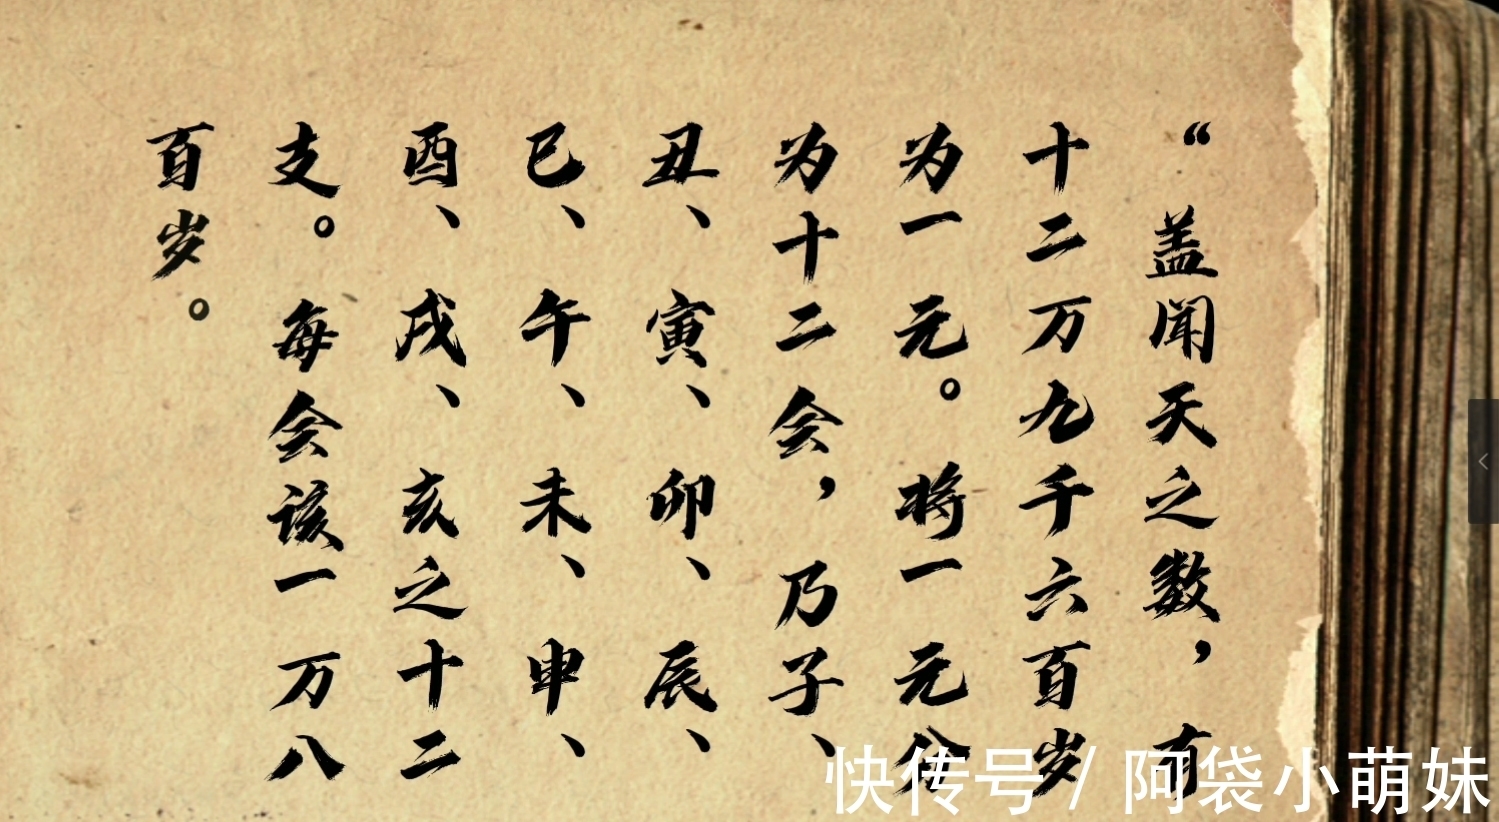 “盖闻天之数，有
十二万九千六百岁
为一元。将一元分
为十二会，乃子、
丑、寅、卯、辰、
巳、午、未、申、
酉、戌、亥之十二
支。每会该一万八
百岁。
快传号 / 阿袋小萌妹